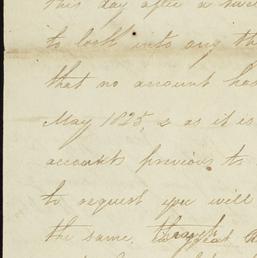 this day after a
to look into any th
that no account ha
May 1825, & as it is
accounts previous to
to request you will
the same, through